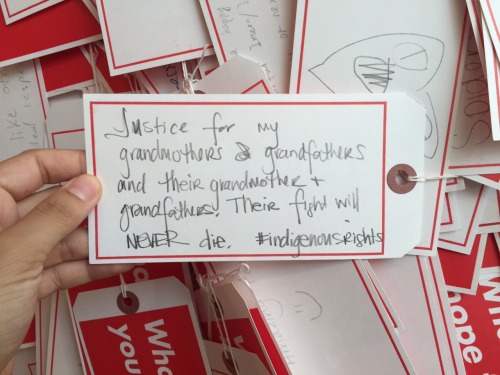 Justice for my
grandmothers & grandfathers
and their grandmother +
grandfathers. Their fight will
NEVER die. #indigenousrights
Who
you
Wh
hope
you